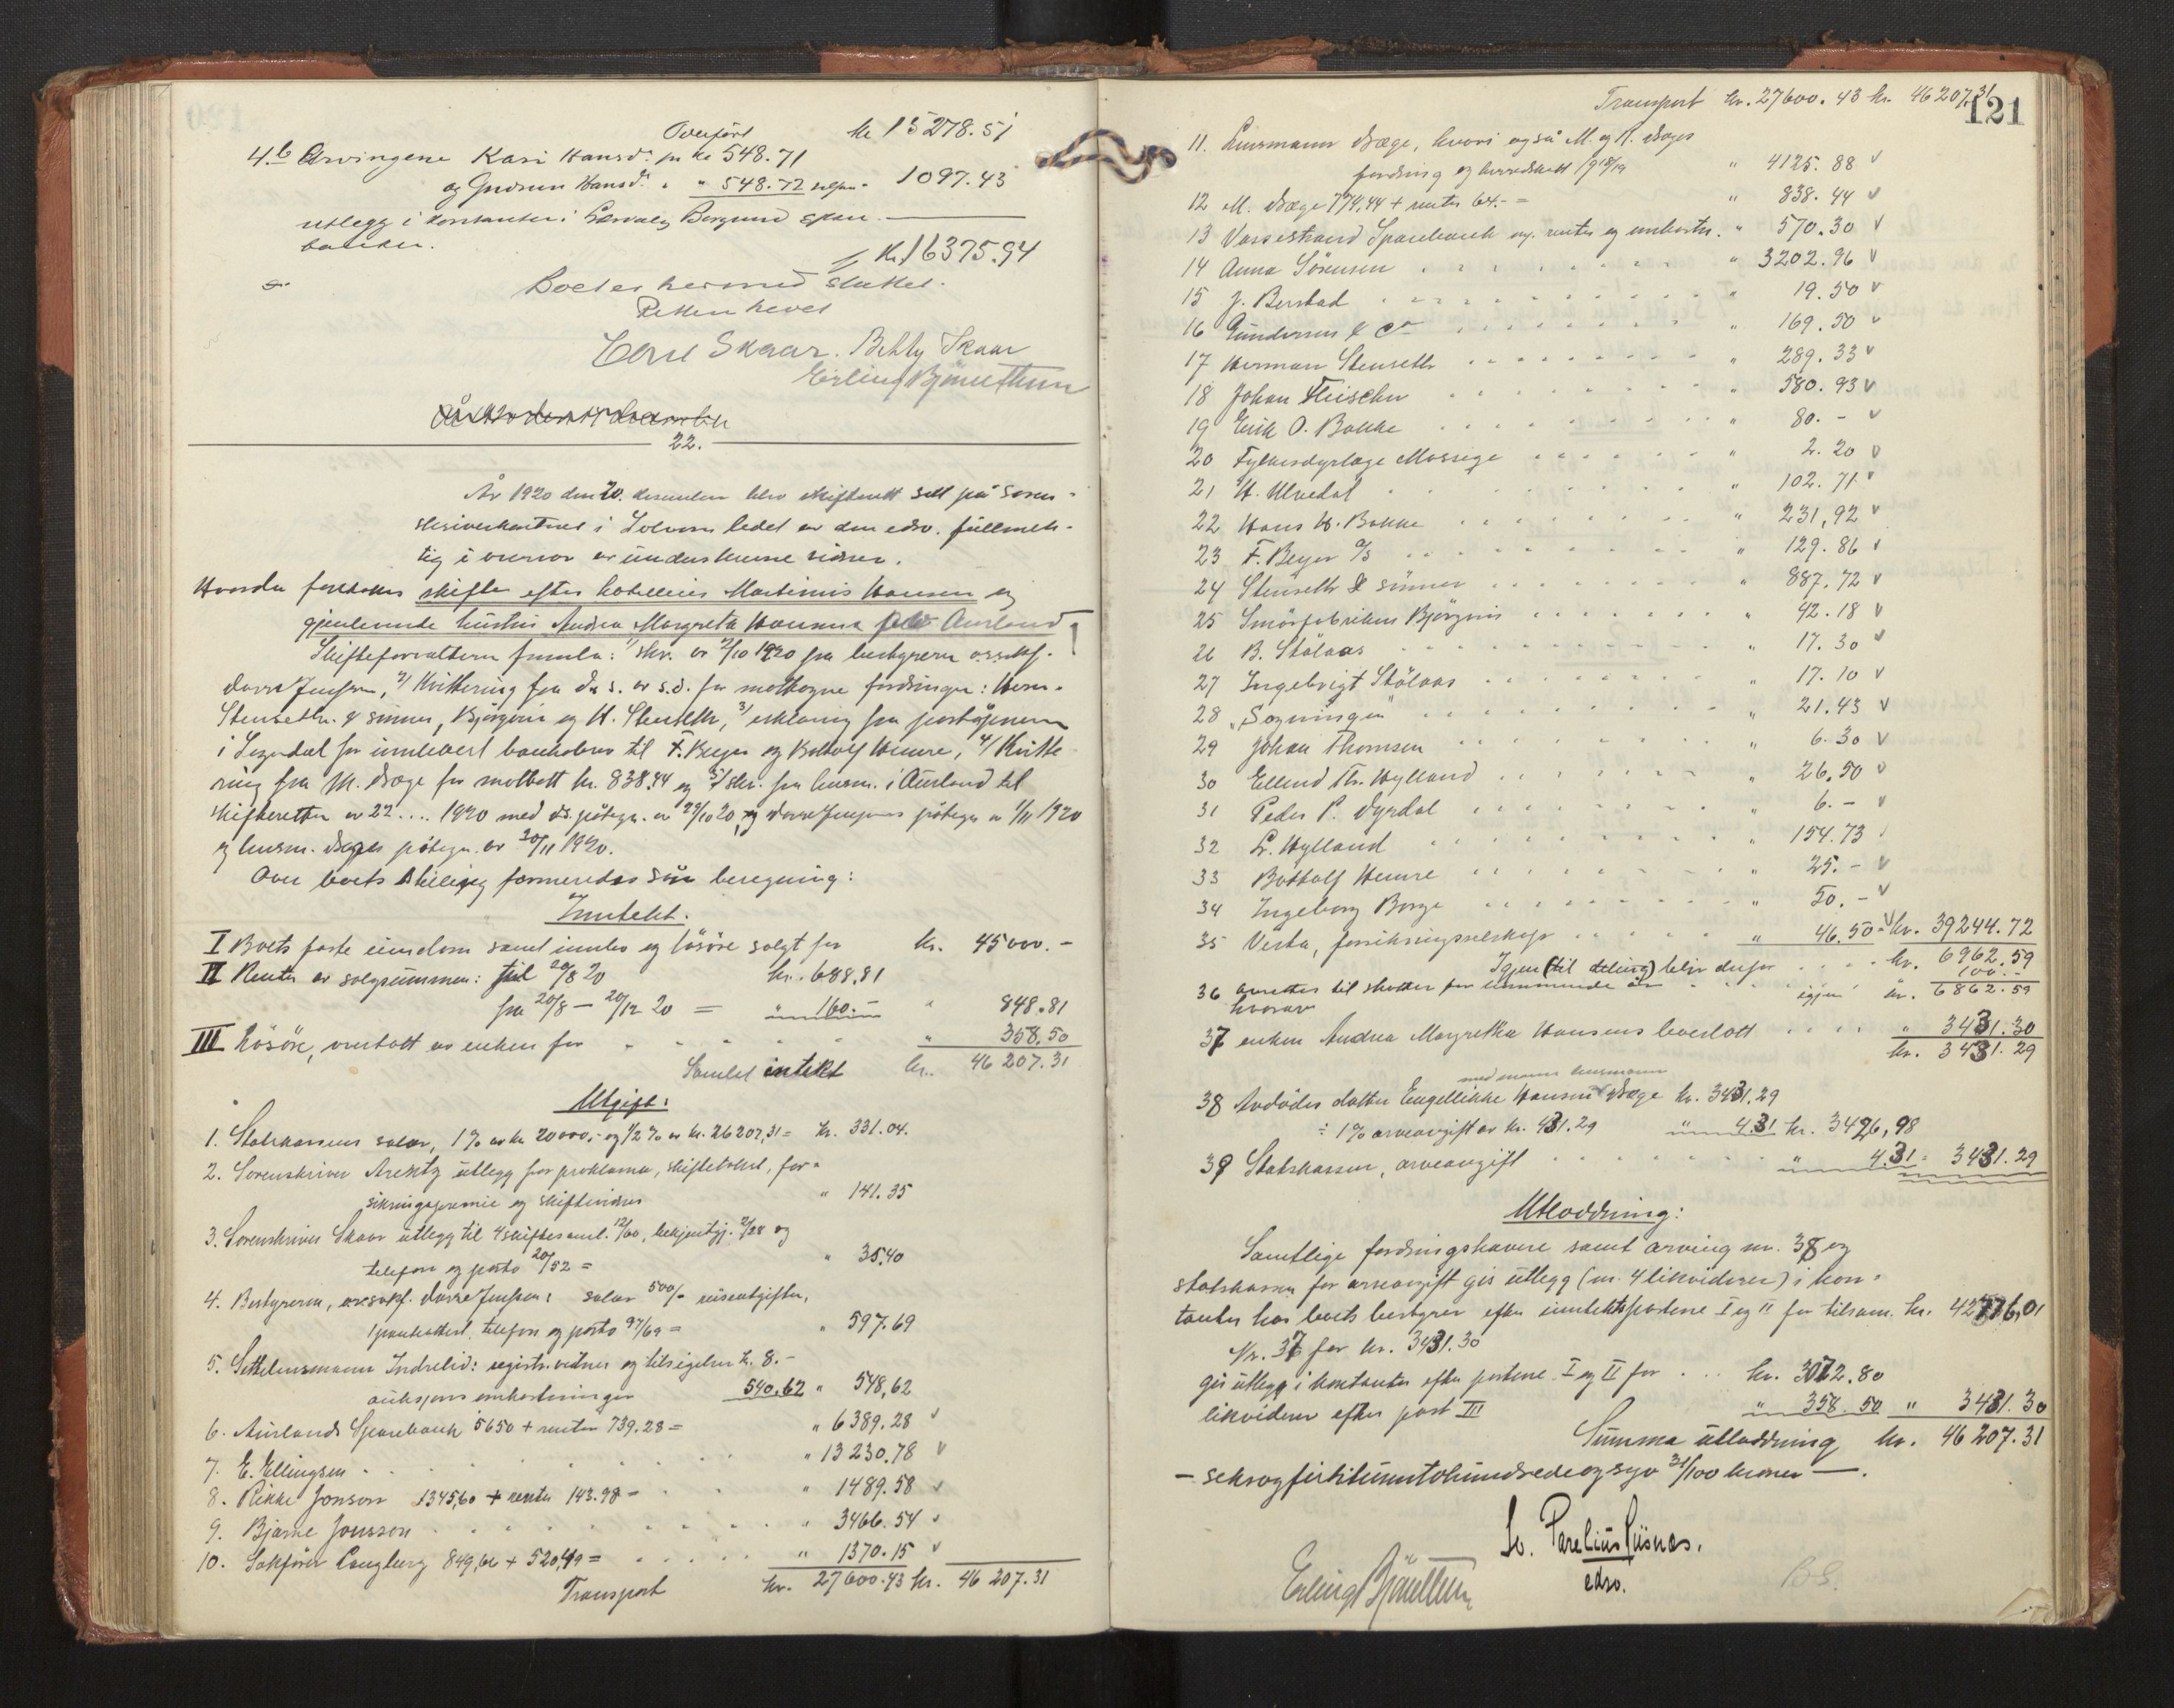 Overført kr 15278.51
4.b Arvingene Kari Hansd. for kr 548.71
og Gudrun Hansd. " " 548.72 1097.43
utlegg i kontanter i og Borgund spare-
banken.
Kr 16375.94
Boet er hermed sluttet.
Retten hevet
Carl Skaar. Betty Skaar
Erling Bjørnethun
22.
År 1920 den 20. desember blev skifterett satt på soren-
skriverkontoret i Solvorn ledet av den edsv. fullmek-
tig i overvær av underskrevne vidner.
Hvorda foretokes skifte efter hotelleier Martinus Hansen og
gjenlevende hustru Andrea Margreta Hansens felesbo Aurland
Skifteforvalteren fremla: 1/ skr. av 2/10 1920 fra bestyreren o.r.sakf.
Jenssen, 2/ Kvittering fra d. s. av s.d. for mottagne fordringer: Herm.
Stenseth & sönner, Björgvin og H. Stenseth, 3/ erklæring fra poståpneren
i for innlevert bankobrev til F. Beyer og Bottolf Hemre, 4/ Kvitte-
ring fra M. Bøge for mottatt kr. 838.44 og 5/ skr. fra lensm. i Aurland til
skifteretten av 22 .... 1920 med ds. påtegn. av 29/10 20, og påtegn av 1/11 1920
og lensm. påtegn. av 30/11 1920.
Over boets stilling formeredes sån beregning:
Inntekt.
I Boets faste eiendom samt innbo og lösöre solgt for kr. 45000.-
II Renter av salgssummen: til 20/8 20 kr. 688,81
fra 20/8 - 20/12 20 = " 160.- " 848.81
III Lösöre, overtatt av enken for " 358.50
Samlet inntekt kr. 46 207.31
Utgift:
1. Statskassens salær, 1% av kr 20000,- og 1/2% av kr. 26207,31 = kr. 331.04.
2. Sorenskriver Arentz utlegg for proklama, skifteboket, for-
sikringspremie og skiftevidner " 141.35
3. Sorenskriver Skaar utlegg til 4 skiftesaml. 12/00, bekjentgj. 2/28 og
telefon og porto 20/52 = " 35.40
4. Bestyreren, o.r.sakf. Jenssen: salær 500/- reiseutgifter,
telefon og porto 97/69 = " 597.69
5. Settelensmann Indrelid: registr. vidner og tilsigelse kr. 8.-
auksjons omkostninger 540.62 " 548,62
6. Aurlands Sparebank 5650 + renter 739.28 = " 6389.28
7. E. Ellingsen " 13230.78
8. Rikke Jonson 1345,60 + renter 143.98 = " 1489.58
9. Bjarne Jonsson " 3466.54
10. Sakförer Langberg 849,66 + 520,49 = " 1370.15
Transport kr. 27600.43 kr. 46 207.31
121
Transport kr. 27600.43 kr. 46207.31
11. Lensmann Bøge, hvori også M. og H. Bøges
fordring og herredskatt 1918/19 " 4125.88
12 M. Bøge 774,44 + renter 64.- = " 838.44
13 Vassestrand Sparebank og. renter og omkostn. " 570.30
14 Anna Sörensen " 3202.96
15 J. Berstad " 19.50
16 Gundersen & Co " 169.50
17 Herman Stenseth " 289.33
18 Johan Fleischer " 580.93
19 Eirik O. Bakke " 80.-
20 Fylkesdyrlæge Mossige 2.20
21 H. Ulvedal " 102.71
22 Hans H. Bakke " 231,92
23 F. Beyer A/S " 129.86
24 Stenseth & sönner " 887.72
25 Smörfabrikken Björgvin " 42.18
26 B. Stölaas " 17.30
27 Ingebrigt Stölaas " 17.10
28 "Sogningen" " 21.43
29 Johan Thomsen " 6.30
30 Ellend Th. Hylland " 26.50
31 Peder P. Dyrdal " 6.-
32 L. Hylland " 154.73
33 Bottolf Hemre " 25.-
34 Ingeborg Borge " 50.-
35 Vesta, forsikringsselskap " 46.50 kr. 39244.72
Igjen (til deling) blir derfor kr. 6962.59
36 avsettes til skatter for innværende år 100.-
hvorav igjen kr. 6862.59
37 enken Andrea Margretha Hansens boeslott " 3431.30
kr. 3431.29
med mann lensmann
38 Avdödes datter Engellikke Hansen Bøge kr. 3431.29
÷ 1% arveavgift av kr. 431.29 " 4.31 kr. 3426,98
39 Statskassen, arveavgift " 4.31 = 3431.29
Utloddning:
Samtlige fordringshavere samt arving nr. 38 og
statskassen for arveavgift gis utlegg (nr. 4 likviderer) i kon-
tanter hos boets bestyrer efter inntektspostene I og II for tilsam. kr. 42776,01
Nr. 37 for kr. 3431.30
gis utlegg i kontanter efter postene I og II for kr. 3072.80
likviderer efter post III " 358.50 " 3431.30
Summa utloddning kr. 46 207.31
- seksogfirtitusentohundredeogsyv 31/100 kroner -.
edsv.
Erling Bjørnethun